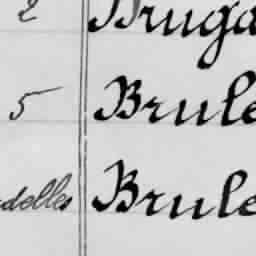 2 Bruga
5 Brule
delles Brule